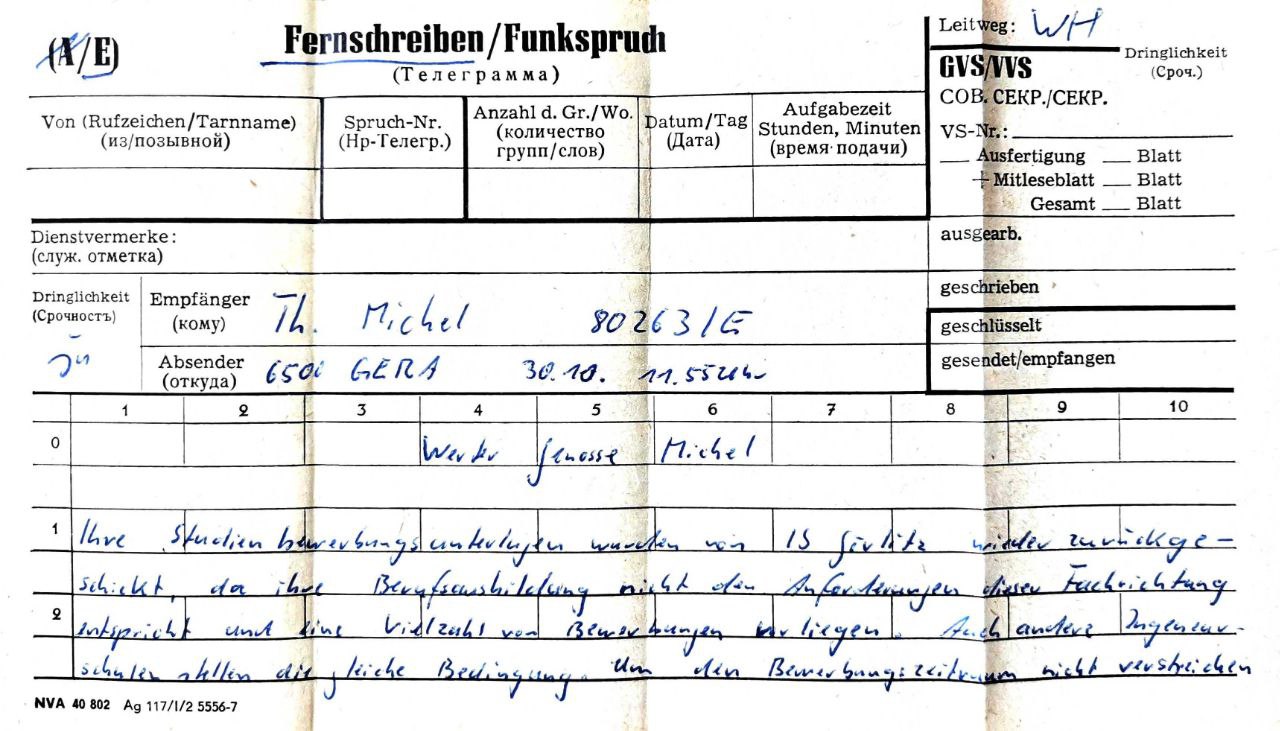 (A/E)
Fernschreiben/Funkspruch
(Телеграмма)
Leitweg: WH
Dringlichkeit
(Сроч.)
GVS/VVS
СОВ. СЕКР./СЕКР.
VS-Nr.:
Ausfertigung Blatt
Mitleseblatt Blatt
Gesamt Blatt
Von (Rufzeichen/Tarnname)
(из/позывной)
Spruch-Nr.
(Нр-Телегр.)
Anzahl d. Gr./Wo.
(количество
групп/слов)
Datum/Tag
(Дата)
Aufgabezeit
Stunden, Minuten
(время подачи)
Dienstvermerke:
(служ. отметка)
ausgearb.
geschrieben
geschlüsselt
gesendet/empfangen
Dringlichkeit
(Срочностъ)
Empfänger
(кому)
Th. Michel 80263/E
Absender
(откуда)
6500 GERA 30.10. 11.55 Uhr
1 2 3 4 5 6 7 8 9 10
0 Werter Genosse Michel
1 Ihre Studienbewerbungsunterlagen wurden von IS Görlitz wieder zurückge-
schickt, da ihre Berufsausbildung nicht den Anforderungen dieser Fachrichtung
2 entspricht und eine Vielzahl von Bewerbungen vorliegen. Auch andere Ingenieur-
schulen stellen die gleiche Bedingung. Um den Bewerbungszeitraum nicht verstreichen
NVA 40 802 Ag 117/I/2 5556-7